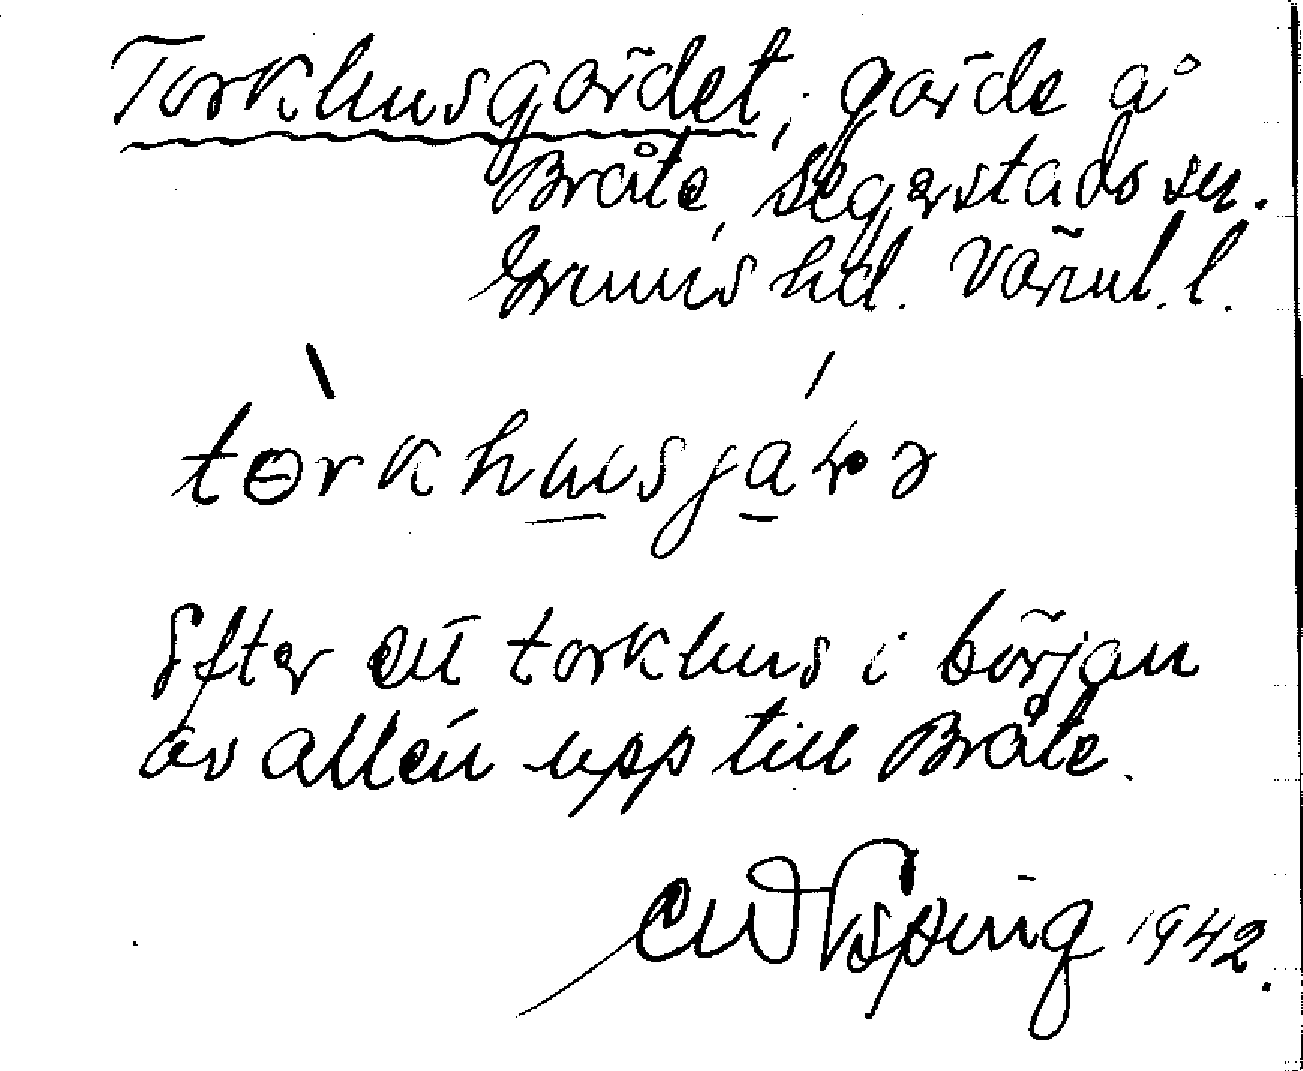 Torkhusgärdet, gärde å
Bråte, Segerstads sn.
Grums hd. Värml. l.
tɵrkhusjäɽə
Efter ett torkhus i början
av allén upp till Bråte.
1942.